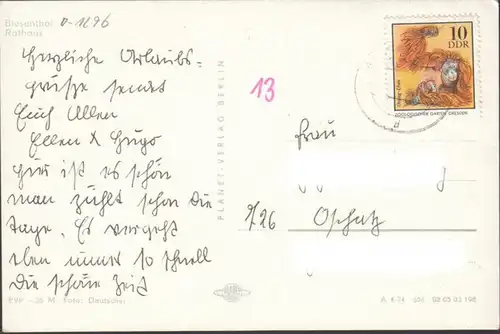 Biesenthal
Rathaus
0-1296
Herzliche Urlaubs-
grüße sendet
Euch Allen
Ellen & Hugo
hier ist es schön
man zählt schon die
Tage. Es vergeht
eben immer so schnell
die schöne Zeit
PLANET-VERLAG BERLIN
13
10
DDR
ZOOLOGISCHER GARTEN DRESDEN
Frau
726 Oschatz
M Foto: Deutscher
A 4-74